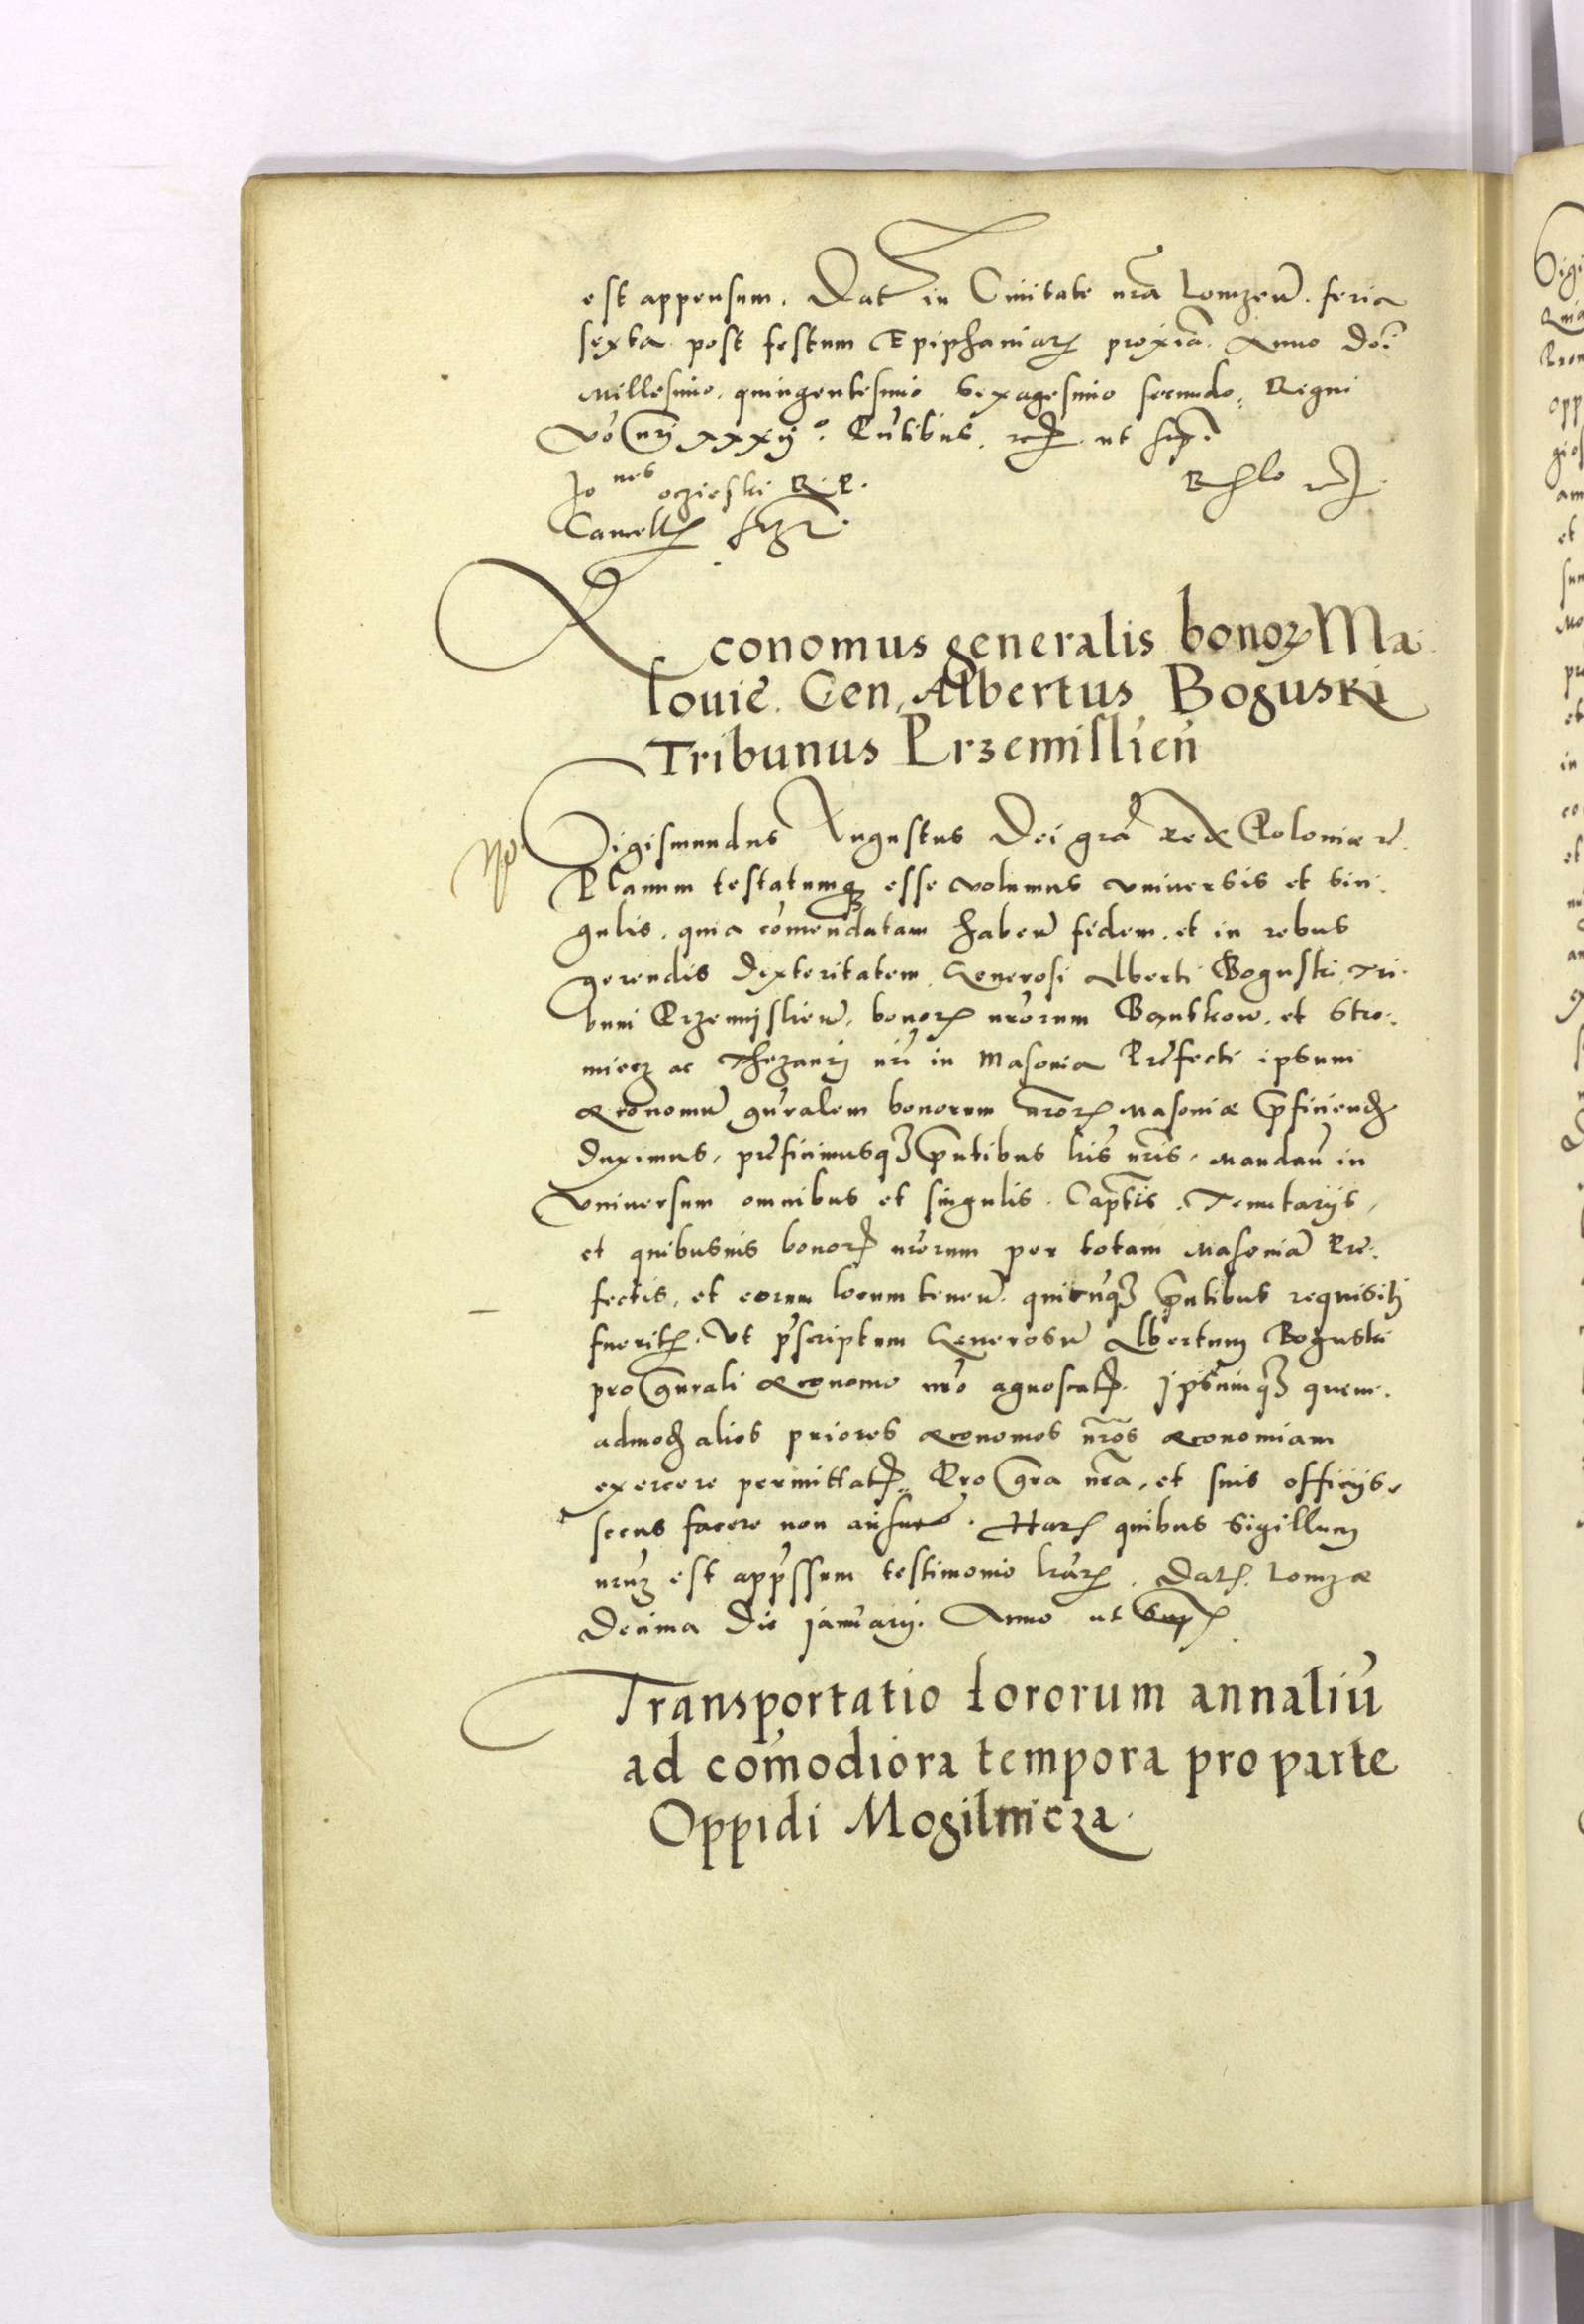 est appensum. Dat in Civitate nrã Lomzeñ. feria
sexta post festum Epiphaniarꝝ proxiã. Anno Doĩ
Millesimo quingentesimo Sexagesimo secundo. Regni
vo nri xxxiij°. Pñtibus ut
Jo nes oczieski R. P.
Cancell
conomus generalis bonoꝝ Ma
souiẽ. Gen. Albertus Boguski
Tribunus Przemislieñ
Sigismundus Augustus Dei grã rex Poloniæ
Planum testatumqꝫ esse volumus vniuersis et sin
gulis. quia comendatam habeñ fidem. et in rebus
gerendis dexteritatem. Generosi Alberti Boguski Tri
buni Przemijslieñ. bonorꝝ nrorum Bantkow. et Stro
miecz ac Thezaurij nri in Masouia Prefecti ipsum
æconomũ gñralem bonorum nrorꝝ Masouiæ pficiendꝫ
duximus, preficimusqꝫ pñtibus lris nris. Mandañ in
vniuersum omnibus et singulis. Captis. Tenutarijs,
et quibusuis bonorꝝ nrorum per totam Masouiã Pre
fectis, et eorum locum teneñ. quicunqꝫ pñtibus requisiti
fueritꝭ. Vt pscriptum Generosũ Albertum Boguski
pro gñrali æconomo nro agnoscatꝭ. ipsumqꝫ quem
admodꝫ alios priores æconomos nros æconomiam
exercere permittatꝭ. Pro gra nra, et suis officijs
secus facere non ausuri. Harꝝ quibus Sigillum
nrũ est appssum testimonio lrarꝝ. Datꝭ. Lomzæ
Decima die januarij. Anno ut Supꝭ
Transportatio fororum annaliũ
ad comodiora tempora pro parte
Oppidi Mogilnicza